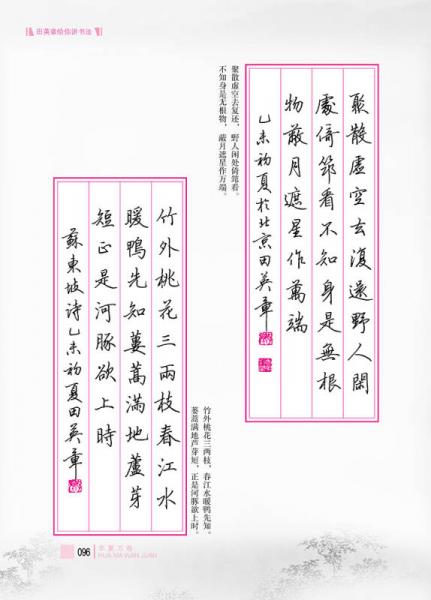 田英章给你讲书法
聚散虛空去復還野人閑
處倚筇看不知身是無根
物蔽月遮星作萬端
乙未初夏於北京田英章
聚散虚空去复还，野人闲处倚筇看。
不知身是无根物，蔽月遮星作万端。
竹外桃花三兩枝春江水
暖鴨先知蔞蒿滿地蘆芽
短正是河豚欲上時
蘇東坡詩乙未初夏田英章
竹外桃花三两枝，春江水暖鸭先知。
蒌蒿满地芦芽短，正是河豚欲上时。
096
华夏万卷
HUA XIA WAN JUAN